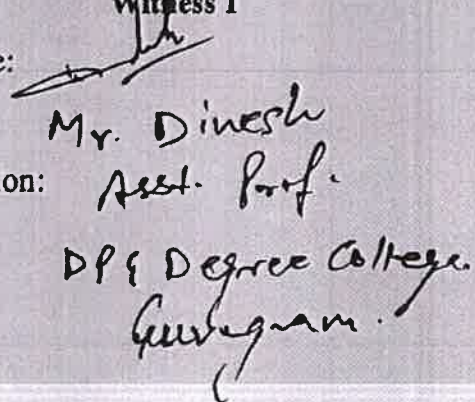 Witness 1
e:
Mr. Dinesh
on: Asst. Prof.
DPG Degree College.
Gurugram.